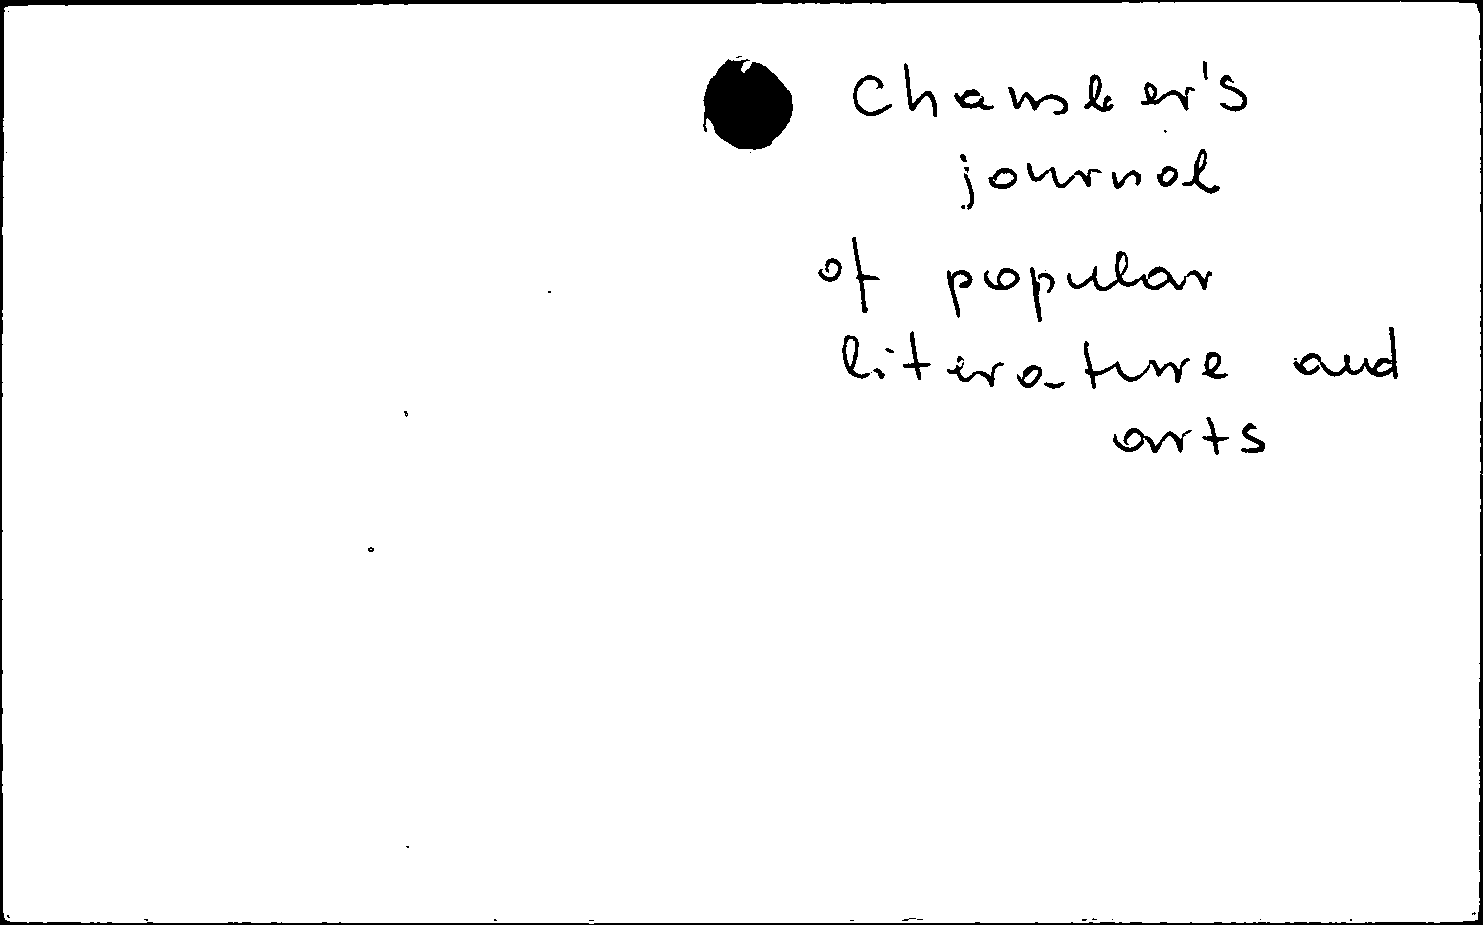 Chamber's
journal
of popular
literature and
arts